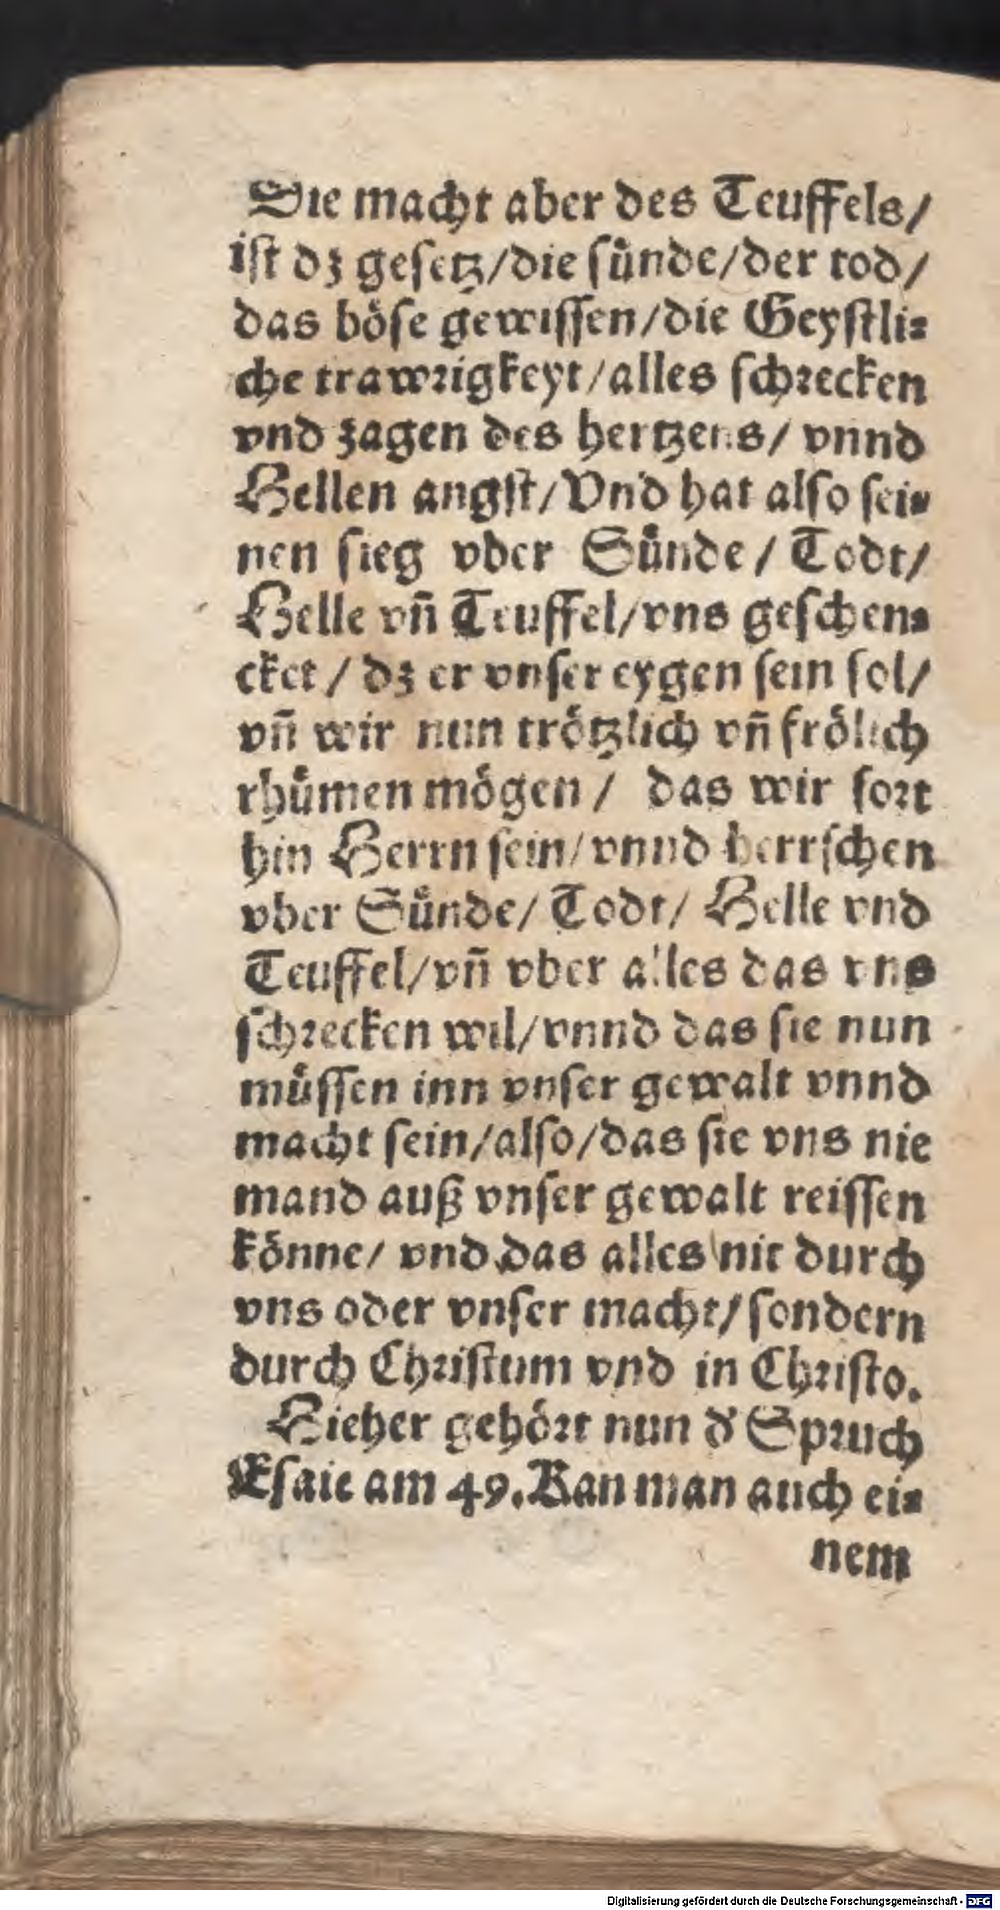 Die macht aber des Teuffels/
ist dz gesetz/die sünde/der tod/
das böse gewissen/die Geystli⸗
che trawrigkeyt/alles schrecken
vnd zagen des hertzens/ vnnd
Hellen angst/Vnd hat also sei⸗
nen sieg vber Sünde/ Todt/
Helle vñ Teuffel/vns geschen⸗
cket/ dz er vnser eygen sein sol/
vñ wir nun trötzlich vñ frölich
rhümen mögen/ das wir fort
hin Herrn sein/vnnd herrschen
vber Sünde/ Todt/ Helle vnd
Teuffel/vñ vber alles das vns
schrecken wil/vnnd das sie nun
müssen inn vnser gewalt vnnd
macht sein/also/das sie vns nie
mand auß vnser gewalt reissen
könne/ vnd das alles nit durch
vns oder vnser macht/sondern
durch Christum vnd in Christo.
Hieher gehört nun d' Spruch
Esaie am 49. Kan man auch ei⸗
nem
Digitalisierung gefördert durch die Deutsche Forschungsgemeinschaft - DFG